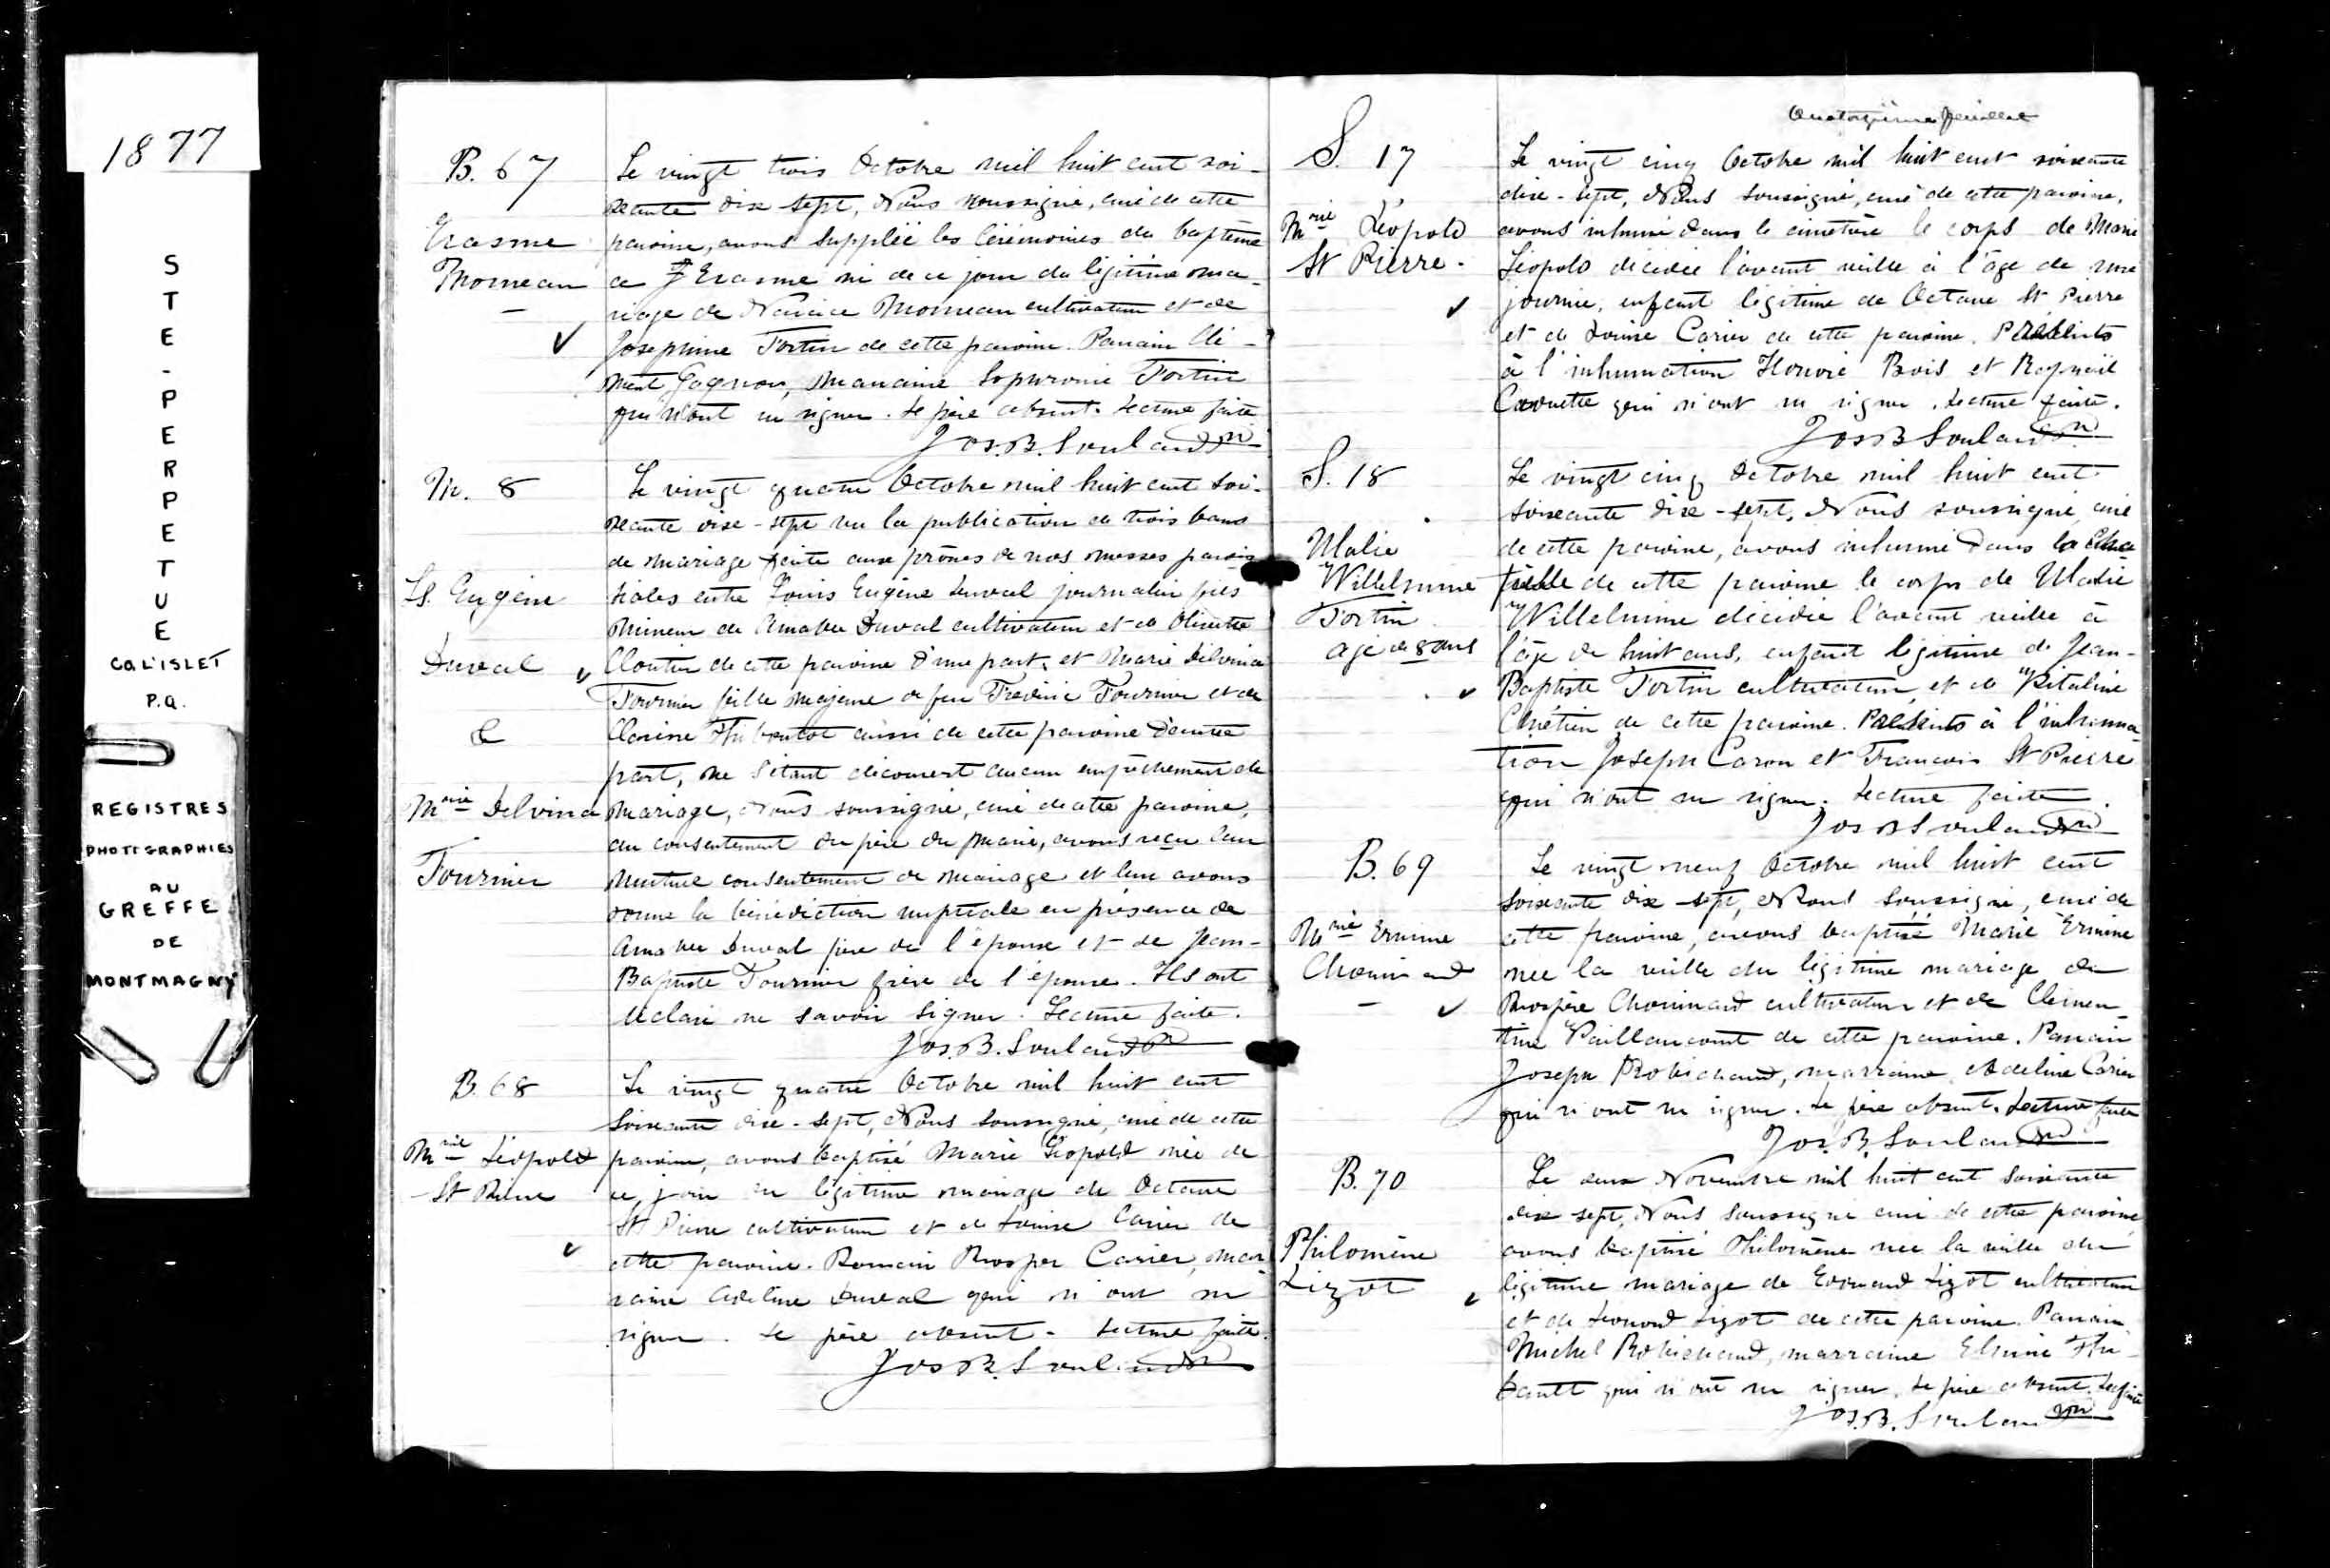 1877
STE-PERPETUE
CO. L'ISLET
P.Q.
REGISTRES
PHOTOGRAPHIES
AU
GREFFE
DE
MONTMAGNY
B. 67
Erasme
Morneau
Le vingt trois Octobre mil huit cent soi-
xante dix sept, Nous soussigné, curé de cette
paroisse, avons supplée les Cérémonies du baptême
a Erasme né de ce jour du légitime ma-
riage de Narcice Morneau cultivateur et de
Josephine Fortin de cette paroisse. Parrain Clé-
ment Gagnon, Marraine Sophronie Fortin
qui n'ont su signer. Le père absent. Lecture faite
Jos. B. Souland Ptre
M. 8
Ls. Eugène
Duval
&
Mrie Delvina
Fournier
Le vingt quatre Octobre mil huit cent soi-
xante dix-sept vu la publication de trois bans
de mariage faite aux prônes de nos messes parois
siales entre Louis Eugène Duval journalier fils
Mineur de Amable Duval cultivateur et de
Cloutier de cette paroisse d'une part, et Marie Delvina
Fournier fille majeure de feu Frédéric Fournier et de
Clarisse Thiboutot aussi de cette paroisse d'autre
part, ne s'étant découvert aucun empêchement de
mariage, Nous soussigné, curé de cette paroisse,
du consentement du père du marié, avons reçu leur
mutuel consentement de mariage et leur avons
donné la bénédiction nuptiale en présence de
Amable Duval père de l'époux et de Jean-
Baptiste Fournier frère de l'épouse. Ils ont
déclaré ne savoir signer. Lecture faite.
Jos. B. Souland Ptre
B. 68
Mrie Léopold
St Pierre
Le vingt quatre Octobre mil huit cent
soixante dix-sept, Nous soussigné, curé de cette
paroisse, avons baptisé Marie Léopold née de
ce jour du légitime mariage de Octave
St Pierre cultivateur et de Louise Carier de
cette paroisse. Parrain Prosper Carier, mar
raine Adeline Duval qui n'ont su
signer. Le père absent. Lecture faite.
Jos B. Souland Ptre
Quatorzième feuillet
S. 17
Mrie Léopold
St Pierre.
Le vingt cinq Octobre mil huit cent soixante
dix-sept, Nous soussigné, curé de cette paroisse,
avons inhumé dans le cimetière le corps de Marie
Léopold décédée l'avant veille à l'âge de une
journée, enfant légitime de Octave St Pierre
et de Louise Carier de cette paroisse. Présents
à l'inhumation Honoré Bois et Raphaël
Caouette qui n'ont su signer. Lecture faite.
Jos B Souland Ptre
S. 18
Malie
Willelmine
Fortin
age de 8 ans
Le vingt cinq Octobre mil huit cent
soixante dix-sept, Nous soussigné, curé
de cette paroisse, avons inhumé dans le
de cette paroisse le corps de Malie
Willelmine décédée l'avant veille à
l'âge de huit ans, enfant légitime de Jean-
Baptiste Fortin cultivateur, et de Vitaline
Chrétien de cette paroisse. Présents à l'inhuma-
tion Joseph Caron et Francois St Pierre
qui n'ont su signer. Lecture faite.
Jos B Souland Ptre
B. 69
Mrie Ermine
Chouinard
Le vingt neuf Octobre mil huit cent
soixante dix-sept, Nous soussigné, curé de
cette paroisse, avons baptisé Marie Ermine
née la veille du légitime mariage de
Prospère Chouinard cultivateur et de Clémen-
tine Vaillancourt de cette paroisse. Parrain
Joseph Robichaud, marraine Adeline Carier
qui n'ont su signer. Le père absent. Lecture faite
Jos. B. Souland Ptre
B. 70
Philomène
Lizot
Le deux Novembre mil huit cent soixante
dix sept, Nous soussigné curé de cette paroisse
avons baptisé Philomène née la veille du
légitime mariage de Edouard Lizot cultivateur
et de Lizot de cette paroisse. Parrain
Michel Robichaud, marraine Elmire Thi-
bault qui n'ont su signer. Le père absent. Lec faite
Jos. B. Souland Ptre